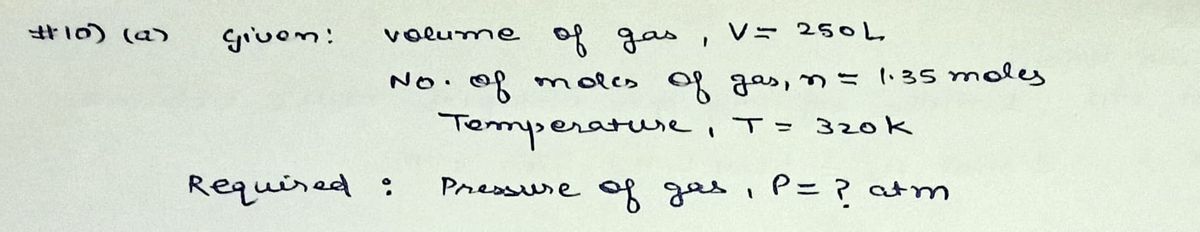 #10) (a) Given: volume of gas, V= 250L
No. of moles of gas, n = 1.35 moles
Temperature, T = 320K
Required : Pressure of gas, P= ? atm